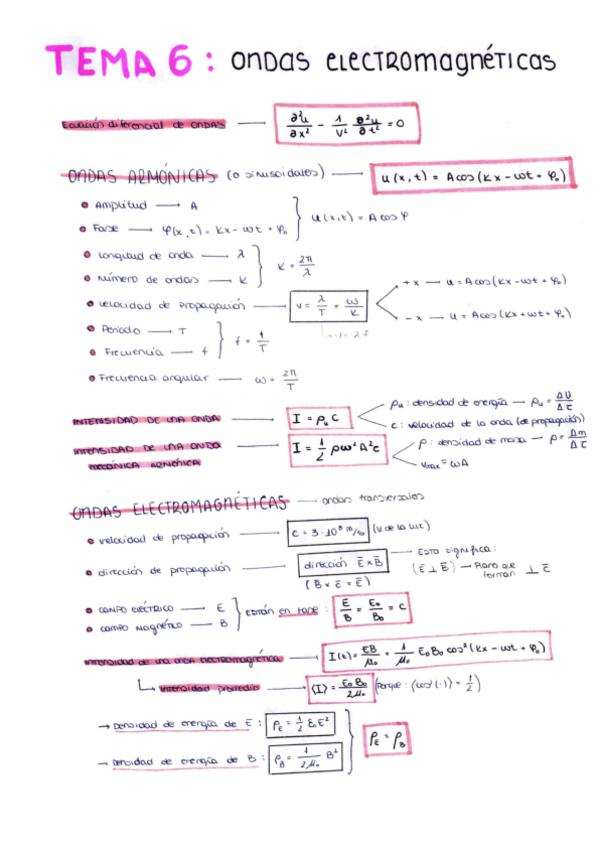 TEMA 6: ondas electromagnéticas
Ecuación diferencial de ondas — ∂²u/∂x² - 1/v² ∂²u/∂t² = 0
ONDAS ARMÓNICAS (o sinusoidales) → u(x,t) = A cos(kx - ωt + φ₀)
Amplitud → A
Fase → φ(x,t) = kx - ωt + φ₀
u(x,t) = A cos φ
Longitud de onda → λ
Número de ondas → k
k = 2π/λ
velocidad de propagación — v = λ/T = ω/k
+x → u = A cos(kx - ωt + φ₀)
-x → u = A cos(kx + ωt + φ₀)
Periodo → T
Frecuencia → f
f = 1/T
Frecuencia angular → ω = 2π/T
INTENSIDAD DE UNA ONDA — I = ρᵤ c
ρᵤ: densidad de energía → ρᵤ = ΔU/Δτ
c: velocidad de la onda (de propagación)
INTENSIDAD DE UNA ONDA MECÁNICA ARMÓNICA — I = 1/2 ρω²A²c
ρ: densidad de masa → ρ = Δm/Δτ
vmax = ωA
ONDAS ELECTROMAGNÉTICAS — ondas transversales
velocidad de propagación — c = 3·10⁸ m/s (v de la luz)
dirección de propagación — dirección E̅×B̅ — Esto significa:
(E̅ ⊥ B̅) → Para que forman ⊥ c̅
(B̅ × c̅ = E̅)
CAMPO ELÉCTRICO → E
CAMPO MAGNÉTICO → B
Están en fase: E/B = E₀/B₀ = c
Intensidad de una onda electromagnética — I(t) = EB/μ₀ = 1/μ₀ E₀B₀ cos²(kx - ωt + φ₀)
Intensidad promedio → ⟨I⟩ = E₀B₀/2μ₀ (Porque: ⟨cos²(·)⟩ = 1/2)
→ Densidad de energía de E̅: ρE = 1/2 ε₀E²
→ Densidad de energía de B: ρB = 1/2μ₀ B²
ρE = ρB